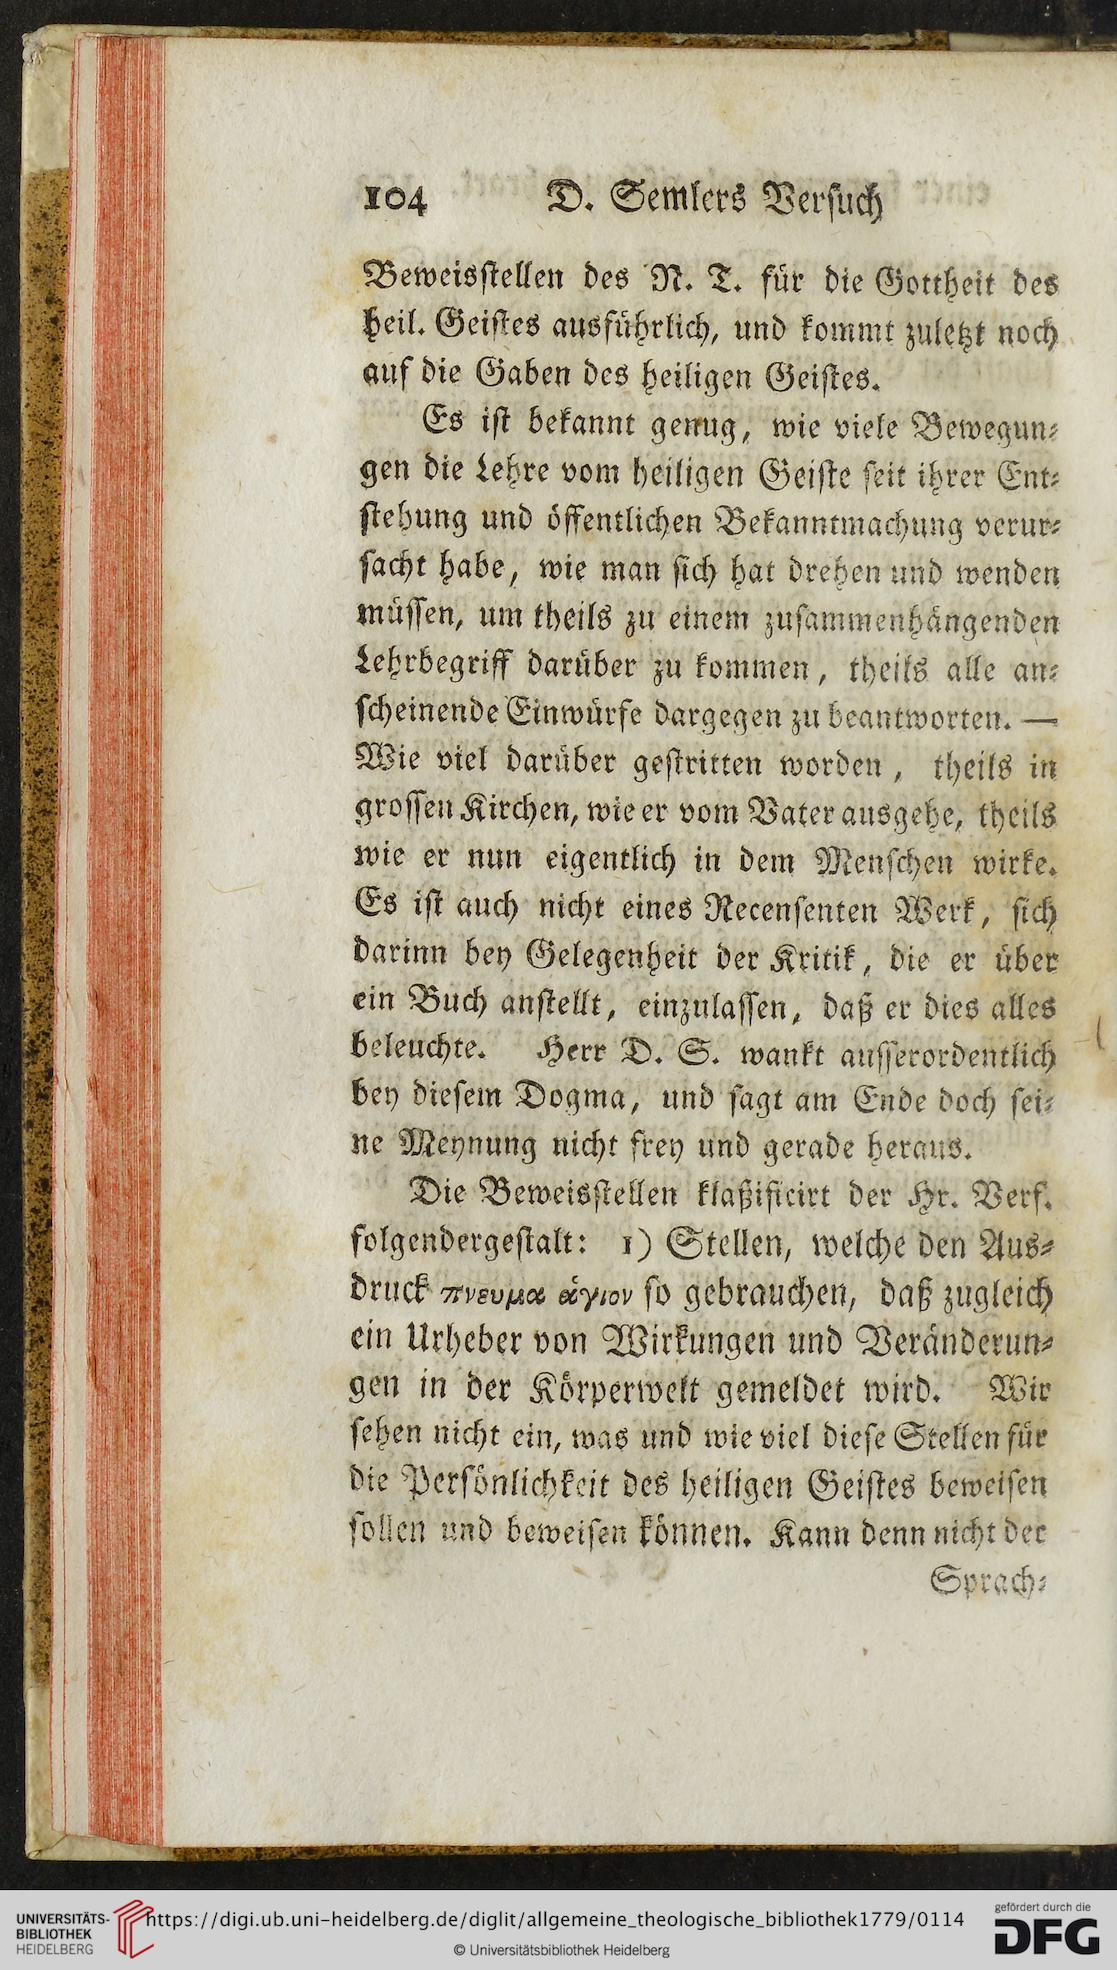 104 D. Semlers Versuch
Beweisstellen des N. T. für die Gottheit des
heil. Geistes ausführlich, und kommt zuletzt noch
auf die Gaben des heiligen Geistes.
Es ist bekannt genug, wie viele Bewegun-
gen die Lehre vom heiligen Geiste seit ihrer Ent-
stehung und öffentlichen Bekanntmachung verur-
sacht habe, wie man sich hat drehen und wenden
müssen, um theils zu einem zusammenhängenden
Lehrbegriff darüber zu kommen, theils alle an-
scheinende Einwürfe dargegen zu beantworten. —
Wie viel darüber gestritten worden, theils in
grossen Kirchen, wie er vom Vater ausgehe, theils
wie er nun eigentlich in dem Menschen wirke.
Es ist auch nicht eines Recensenten Werk, sich
darinn bey Gelegenheit der Kritik, die er über
ein Buch anstellt, einzulassen, daß er dies alles
beleuchte. Herr D. S. wankt ausserordentlich
bey diesem Dogma, und sagt am Ende doch sei-
ne Meynung nicht frey und gerade heraus.
Die Beweisstellen klaßificirt der Hr. Verf.
folgendergestalt: 1) Stellen, welche den Aus-
druck πνευμα ἁγιον so gebrauchen, daß zugleich
ein Urheber von Wirkungen und Veränderun-
gen in der Körperwelt gemeldet wird. Wir
sehen nicht ein, was und wie viel diese Stellen für
die Persönlichkeit des heiligen Geistes beweisen
sollen und beweisen können. Kann denn nicht der
Sprach-
UNIVERSITÄTS-
BIBLIOTHEK
HEIDELBERG
https://digi.ub.uni-heidelberg.de/diglit/allgemeine_theologische_bibliothek1779/0114
© Universitätsbibliothek Heidelberg
gefördert durch die
DFG